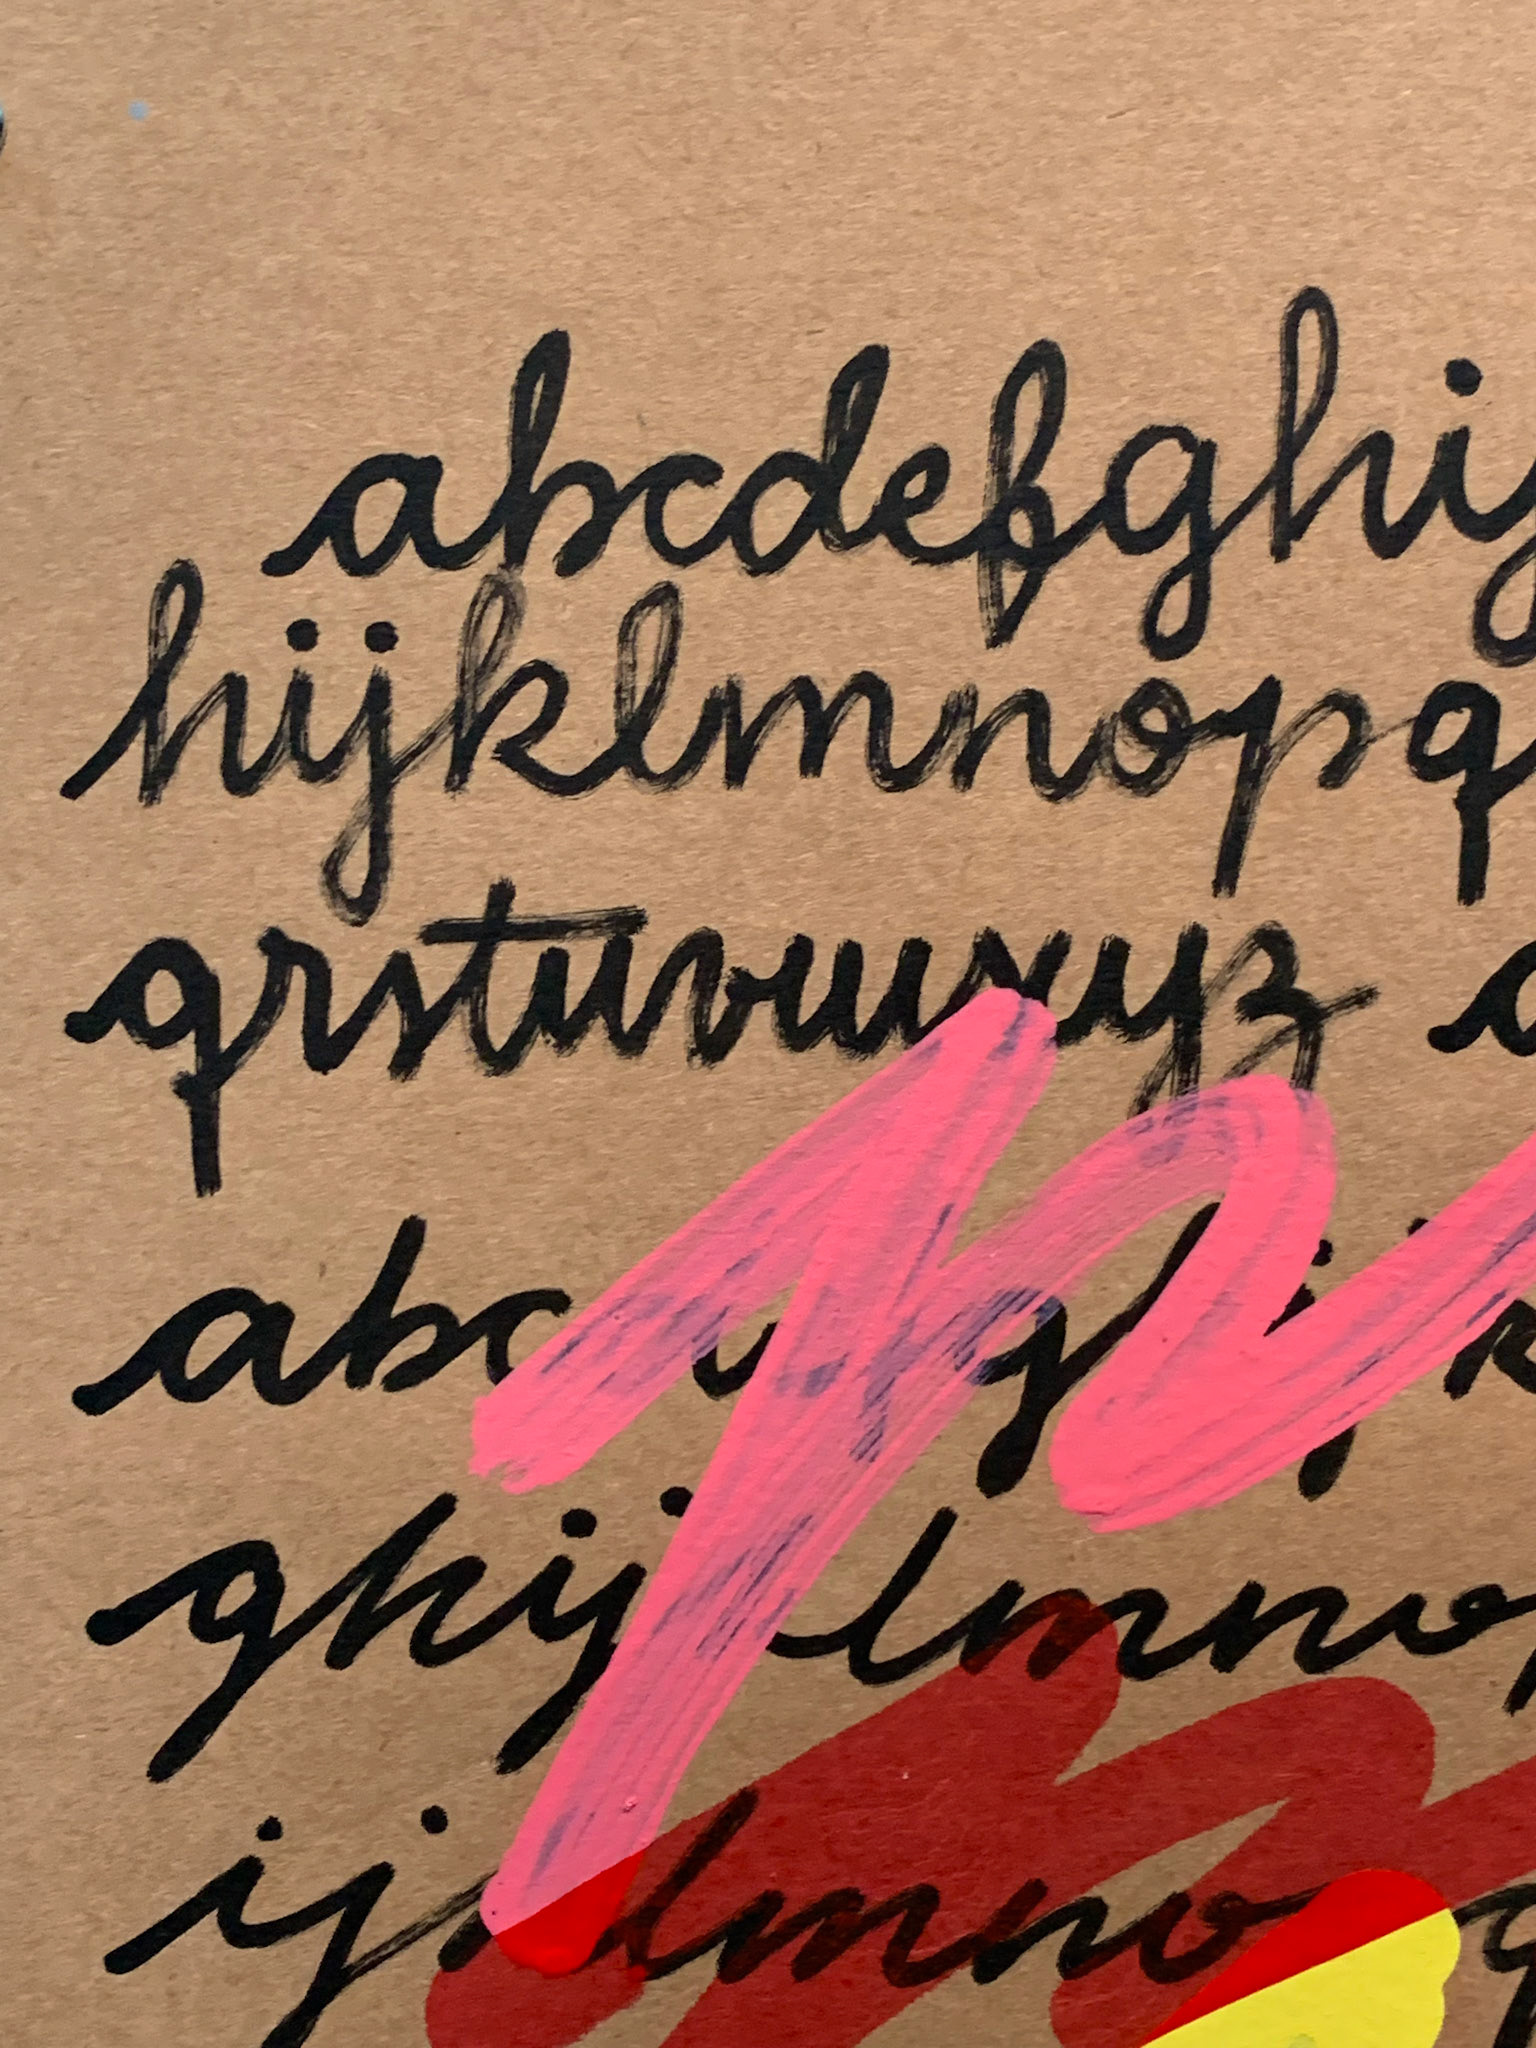 abcdefghij
hijklmnopq
qrstuvwxyz a
abc g k
ghij lmnop
ij lmno q